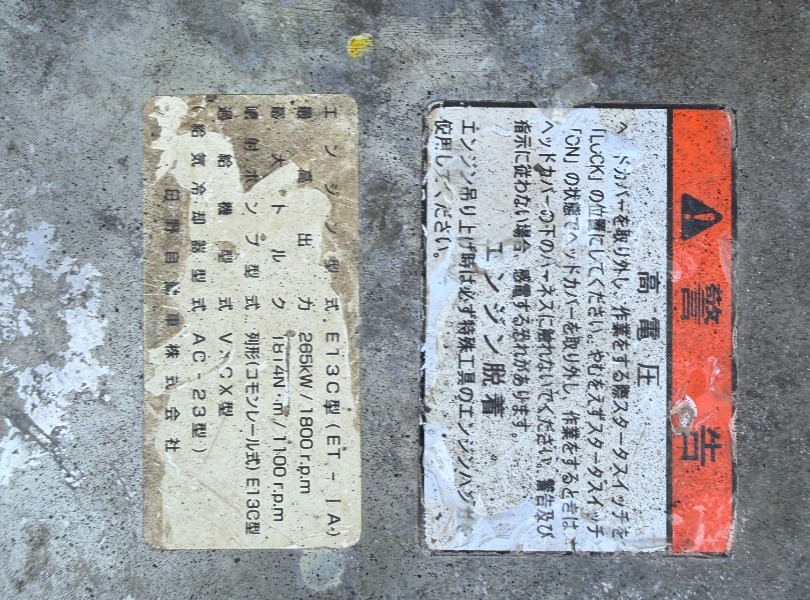 警告
高電圧
ヘッドカバーを取り外し、作業をする際スタータスイッチを
「LOCK」の位置にしてください。やむをえずスタータスイッチ
「ON」の状態でヘッドカバーを取り外し、作業をするときは
ヘッドカバーの下のハーネスに触れないでください。警告及び
指示に従わない場合、感電する恐れがあります。
エンジン脱着
エンジン吊り上げ時は必ず特殊工具のエンジンハンガを
使用してください。
エンジン型式 E13C型(ET-IA)
最高出力 265kW/1800r.p.m
最大トルク 1814N·m/1100r.p.m
噴射ポンプ型式 列形(コモンレール式)E13C型
過給機型式 VXCX型
(給気冷却器型式 AC-23型)
日野自動車株式会社